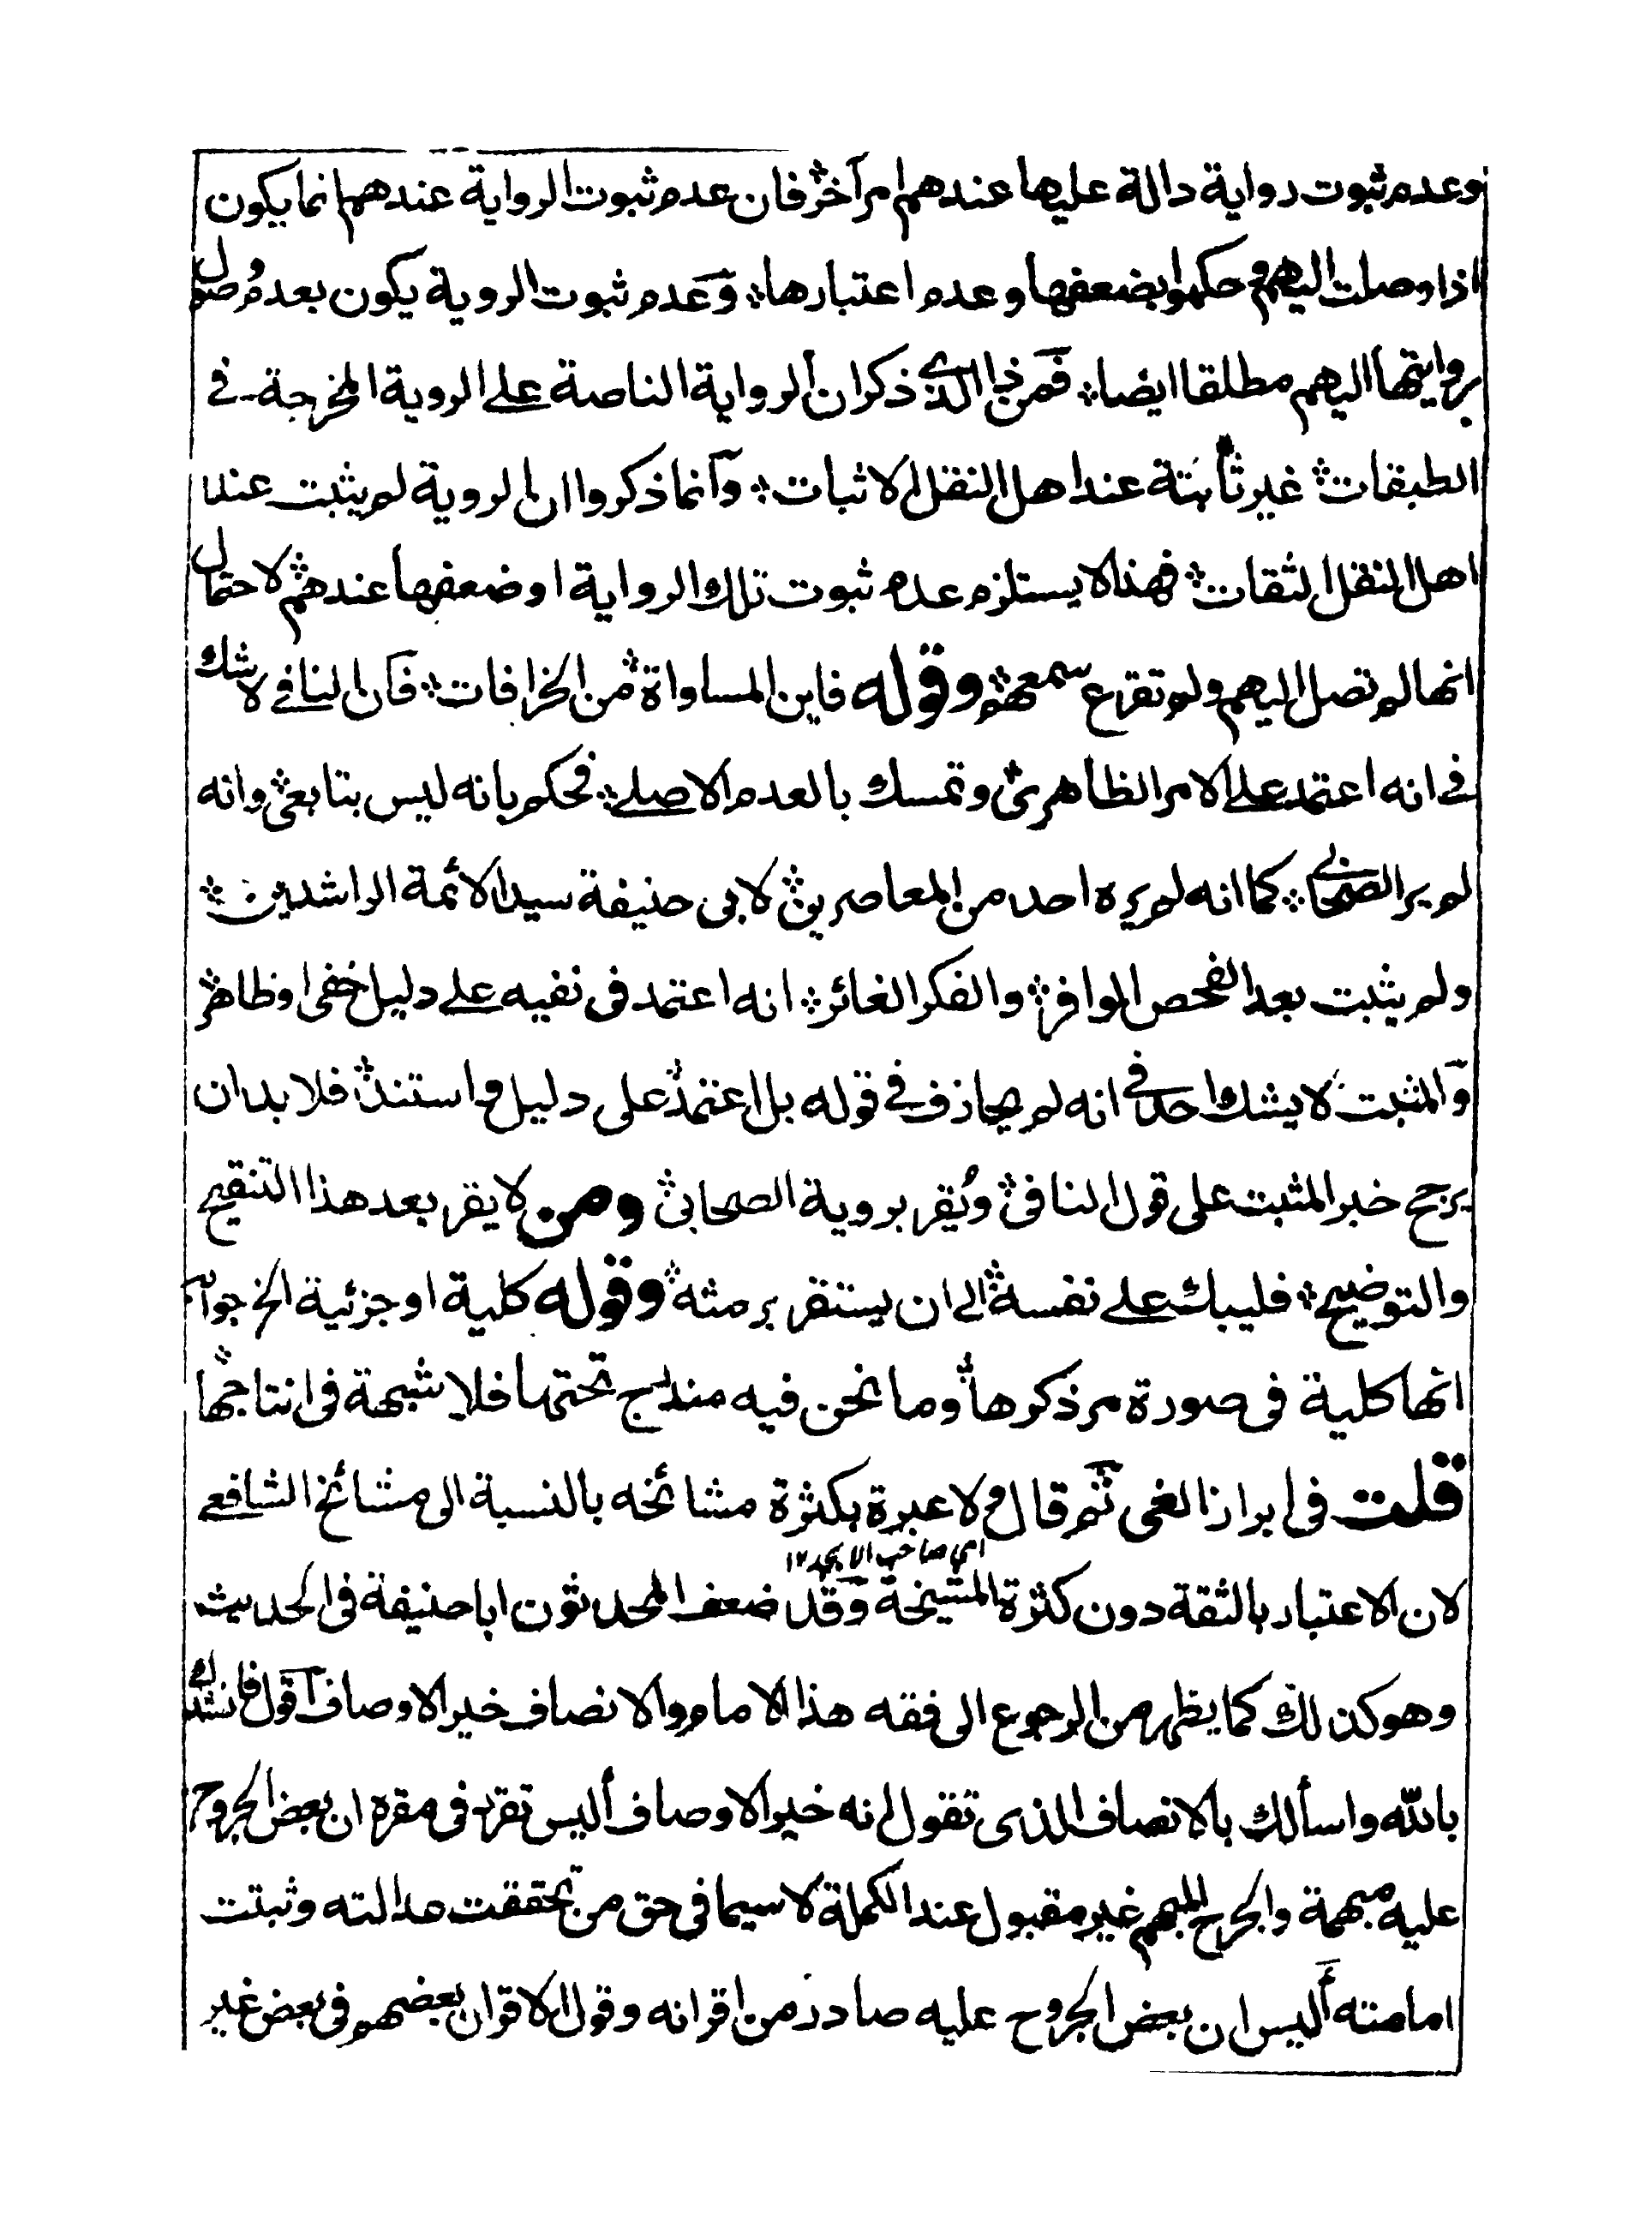 وعدم ثبوت رواية دالة عليها عندهم امر آخر فان عدم ثبوت الرواية عندهم انما يكون
اذا وصلت اليهم و حكموا بضعفها وعدم اعتبارها وعدم ثبوت الروية يكون بعدم وصول
روايتها اليهم مطلقا ايضا فمن ذا الذي ذكر ان الرواية الناصة على الروية المخرجة في
الطبقات غير ثابتة عند اهل النقل الاثبات وانما ذكروا ان الروية لم يثبت عند
اهل النقل الثقات فهذا لا يستلزم عدم ثبوت تلك الرواية او ضعفها عندهم لاحتمال
انها لم تصل اليهم ولم تقرع سمعهم وقوله فاين المساواة من الخرافات فان النافي لا شك
في انه اعتمد على الامر الظاهري وتمسك بالعدم الاصلي فحكم بانه ليس بتابعي وانه
لم ير الصحابي كما انه لم يره احد من المعاصرين لابى حنيفة سيد الائمة الراشدين
ولم يثبت بعد الفحص الوافر والفكر الغائر انه اعتمد فى نفيه على دليل خفى او ظاهر
والمثبت لا يشك احد في انه لم يجازف في قوله بل اعتمد على دليل واستند فلا بد ان
يرجح خبر المثبت على قول النافى ويقر بروية الصحابى ومن لا يقر بعد هذا التنقيح
والتوضيح فليبك على نفسه الى ان يستقر برمثه وقوله كلية او جزئية الخ جوابه
انها كلية فى صورة مر ذكرها وما نحن فيه مندرج تحتها فلا شبهة فى انتاجها
قلت فى ابراز الغى ثم قال ولا عبرة بكثرة مشائخه بالنسبة الى مشائخ الشافعي
اى صاحب الابجد ١٢
لان الاعتبار بالثقة دون كثرة المشيخة وقد ضعف المحدثون ابا حنيفة فى الحديث
وهو كذلك كما يظهر من الرجوع الى فقه هذا الامام والانصاف خير الاوصاف اقول فانشدك
بالله واسألك بالانصاف الذى تقول انه خير الاوصاف أليس تقرر فى مقره ان بعض الجروح
عليه مبهمة والجرح المبهم غير مقبول عند الكملة لا سيما فى حق من تحققت عدالته وثبتت
امامته أليس ان بعض الجروح عليه صادر من اقرانه وقول الاقران بعضهم فى بعض غير